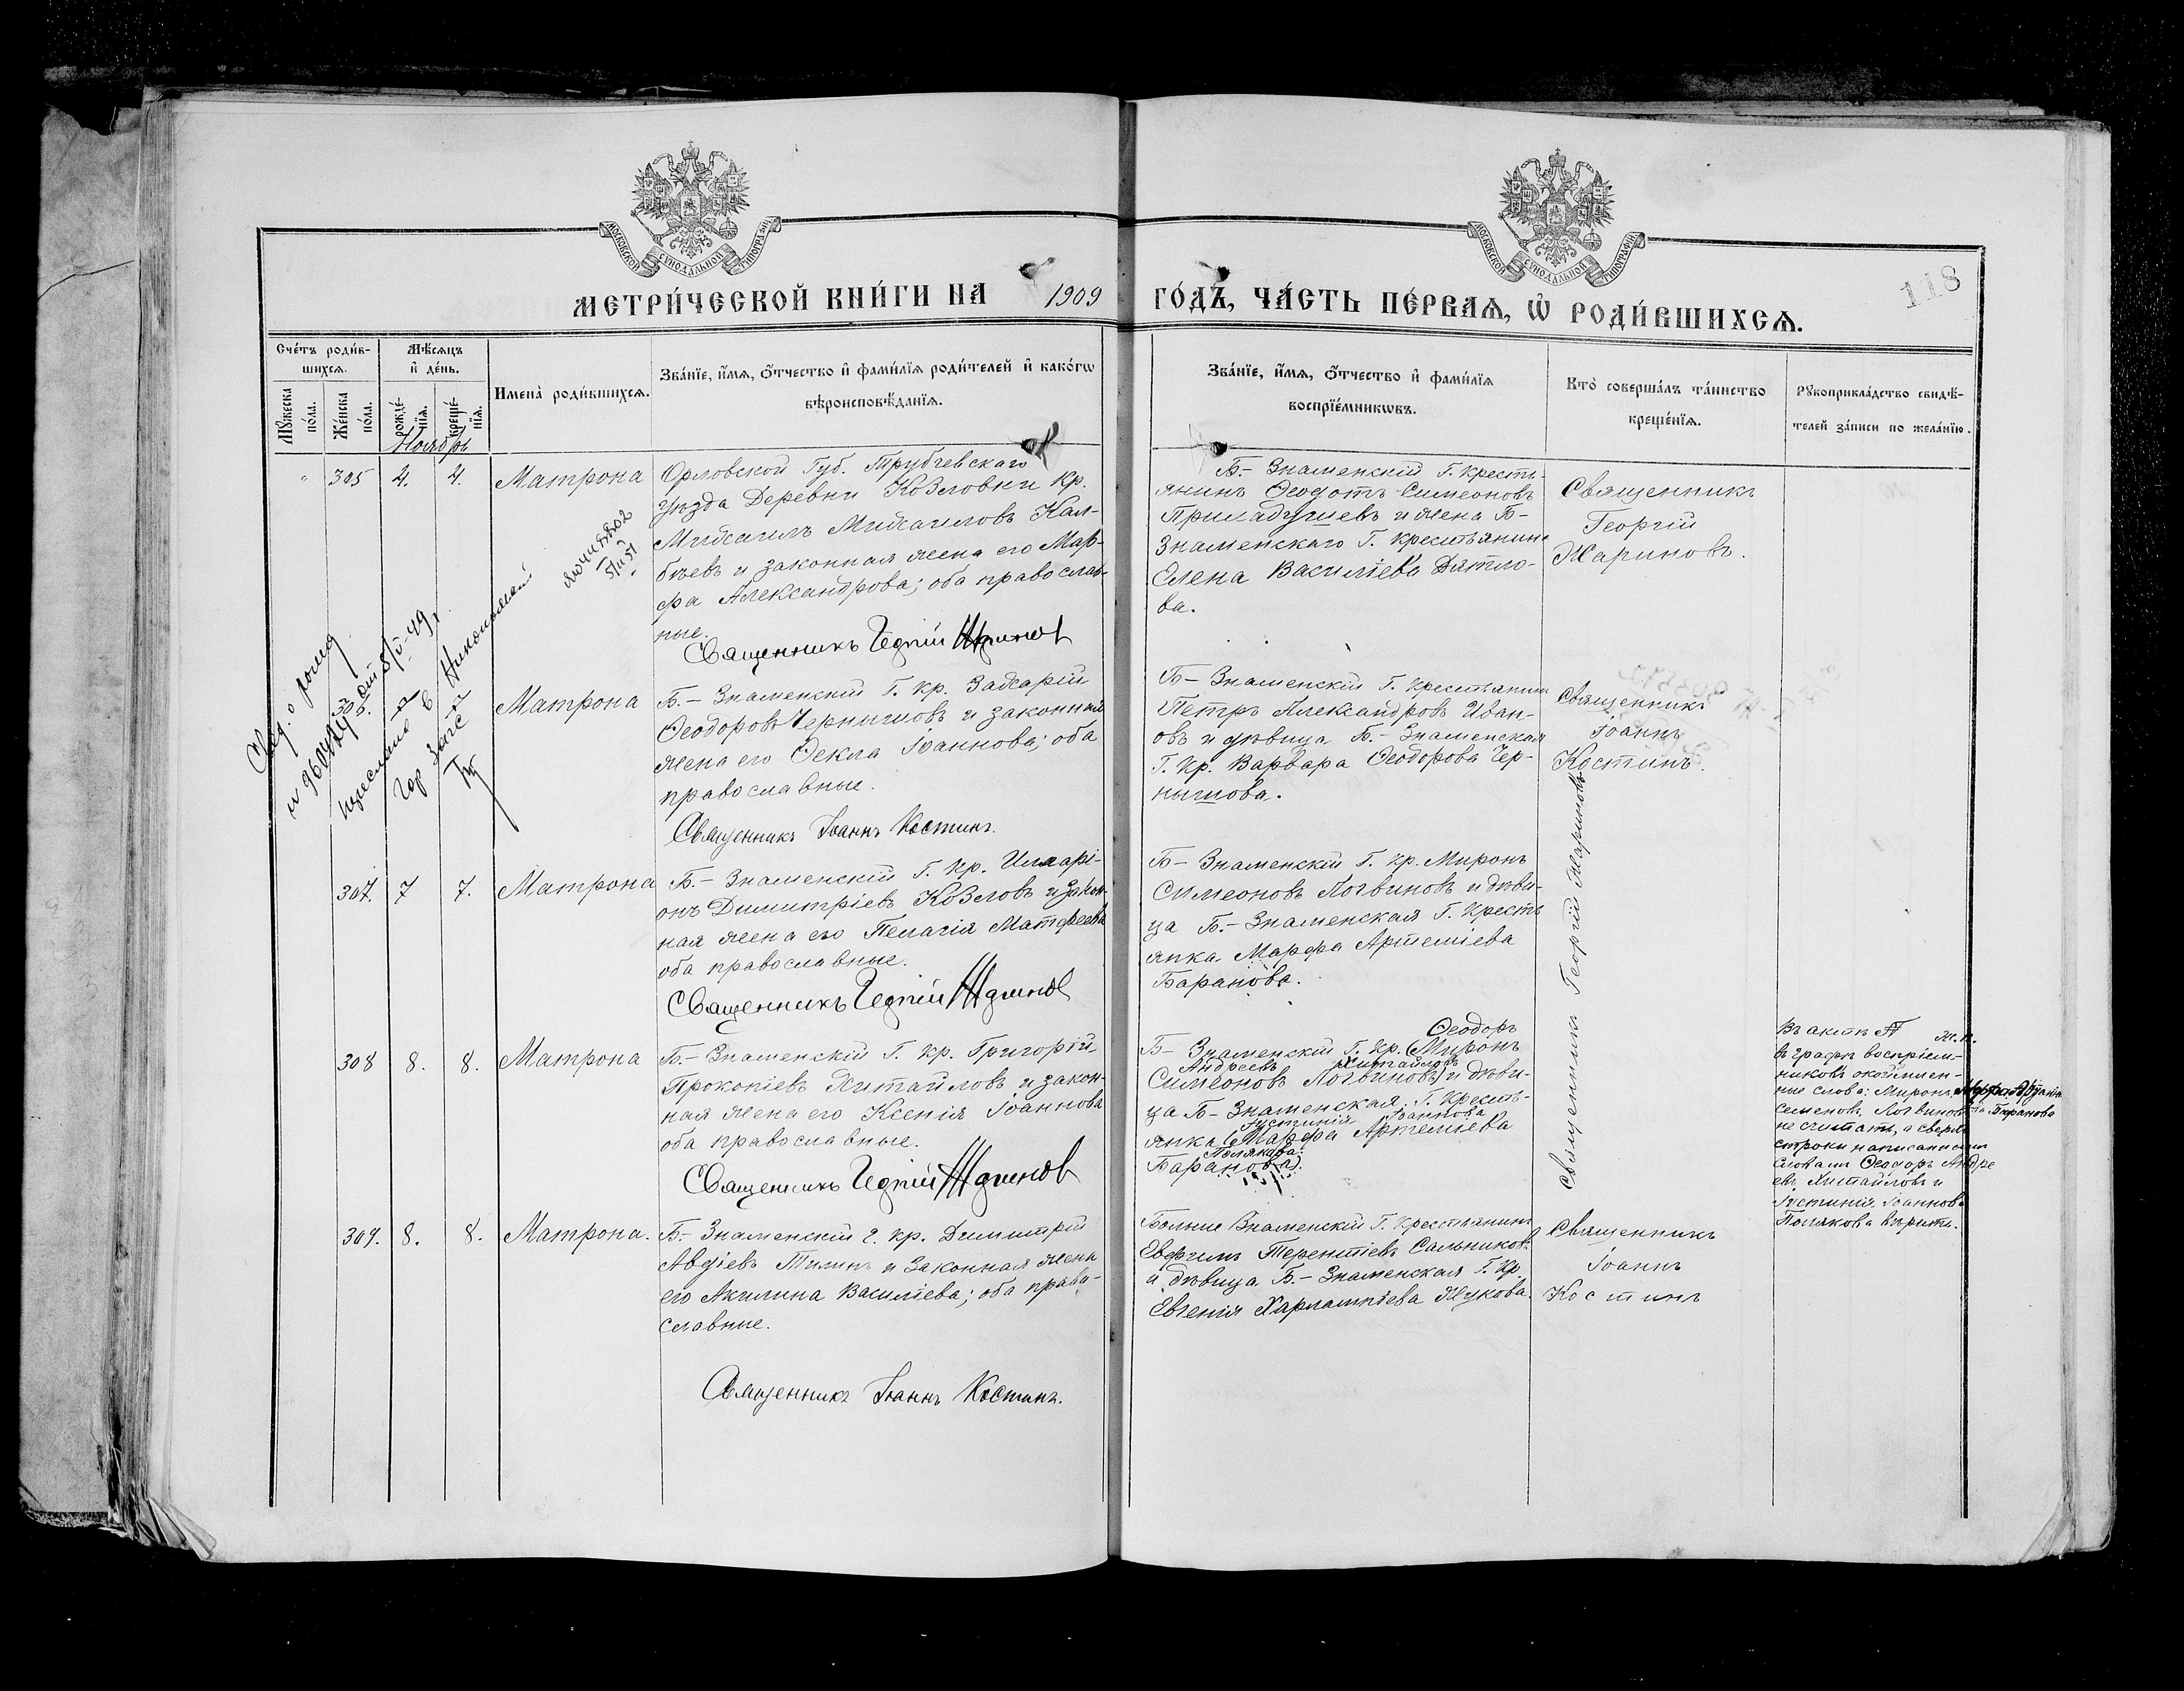 МОСКОВСКОЙ СѴНОДАЛЬНОЙ ТИПОГРАФІИ
МОСКОВСКОЙ СѴНОДАЛЬНОЙ ТИПОГРАФІИ
МЕТРИ́ЧЕСКОЙ КНИ́ГИ НА 1909 ГО́ДЪ, ЧА́СТЬ ПЕ́РВАѦ, Ѿ РОДИ́ВШИХСѦ.
118
Сче́тъ роди́в-
шихсѧ.
Мѣ́сѧцъ
и҆ де́нь.
Мꙋ́жеска
по́ла.
Же́нска
по́ла.
рожде́-
нїѧ.
креще́-
нїѧ.
Имена̀ роди́вшихсѧ.
Зва́нїе, и҆́мѧ, ѻ҆́тчество и҆ фами́лїѧ роди́телей и҆ како́гѡ
вѣроисповѣ́данїѧ.
Зва́нїе, и҆́мѧ, ѻ҆́тчество и҆ фами́лїѧ
воспрїе́мникѡвъ.
Кто̀ соверша́лъ та́инство
креще́нїѧ.
Рꙋкоприкла́дство свидѣ́-
телей за́писи по жела́нїю.
Ноябрь
" 305 4. 4. Матрона
Орловской Губ. Трубчевскаго
уѣзда Деревни Козловки кр.
Михаилъ Михаиловъ
и законная жена его Мар-
фа Александрова; оба православ-
ные.
Священникъ Георгій Жариновъ
Б.- Знаменскій Г. кресть-
янинъ Ѳеодотъ Симеоновъ
и жена Б-
Знаменскаго Г. крестьянина
Елена Василіева Дятло-
ва.
Священникъ
Георгій
Жариновъ.
Свид. о рожд
5/V-49
Гор Загс
5/II 51
306. Матрона
Б.- Знаменскій Г. кр. Захарій
Ѳеодоровъ Чернышовъ и законная
жена его Ѳекла Іоаннова; оба
православные.
Священникъ Іоаннъ Костинъ.
Б- Знаменскій Г. крестьянинъ
Петръ Александровъ Иван-
овъ и дѣвица Б.- Знаменская
Г. кр. Варвара Ѳеодорова Чер-
нышова.
Священникъ
Іоаннъ
Костинъ.
307. 7 7. Матрона
Б.- Знаменскій Г. кр. Иларі-
онъ Димитріевъ Козловъ и закон-
ная жена его Пелагія Матѳеева
оба православные.
Священникъ Георгій Жариновъ
Б- Знаменскій Г. кр. Миронъ
Симеоновъ Логвиновъ и дѣви-
ца Б.- Знаменская Г. кресть
янка Марфа Артеміева
Баранова.
Священникъ Георгій Жариновъ
308 8. 8. Матрона
Б.- Знаменскій Г. кр. Григорій
Прокопіевъ Хитайловъ и закон-
ная жена его Ксенія Іоаннова
оба православные.
Священникъ Георгій Жариновъ
Ѳеодоръ
Б- Знаменскій Г. кр. (Миронъ
Андреевъ Хитайловъ
Симеоновъ Логвиновъ) и дѣви-
ца Б- Знаменская Г. кресть-
Іустинія Іоаннова
янка (Марфа Артеміева
Полякова.
Баранова).
Въ актѣ
въ графѣ воспріем-
никовъ окаймлен-
ные слова: Миронъ
Семеновъ Логвиновъ Баранова
не считать, а сверхъ
строки написаннымъ
словамъ Ѳеодоръ Андре
евъ Хитайловъ и
Іустинія Іоаннова
Полякова вѣрить.
309. 8. 8. Матрона.
Б- Знаменскій Г. кр. Димитрій
Авдіевъ Тилинъ и законная жена
его Акилина Василіева; оба право-
славные.
Священникъ Іоаннъ Костинъ.
Больше Знаменскій Г. крестьянинъ
Евфимъ Терентіевъ Сальниковъ
и дѣвица Б.- Знаменская Г. кр
Евгенія Харлампіева Жукова.
Священникъ
Іоаннъ
Костинъ